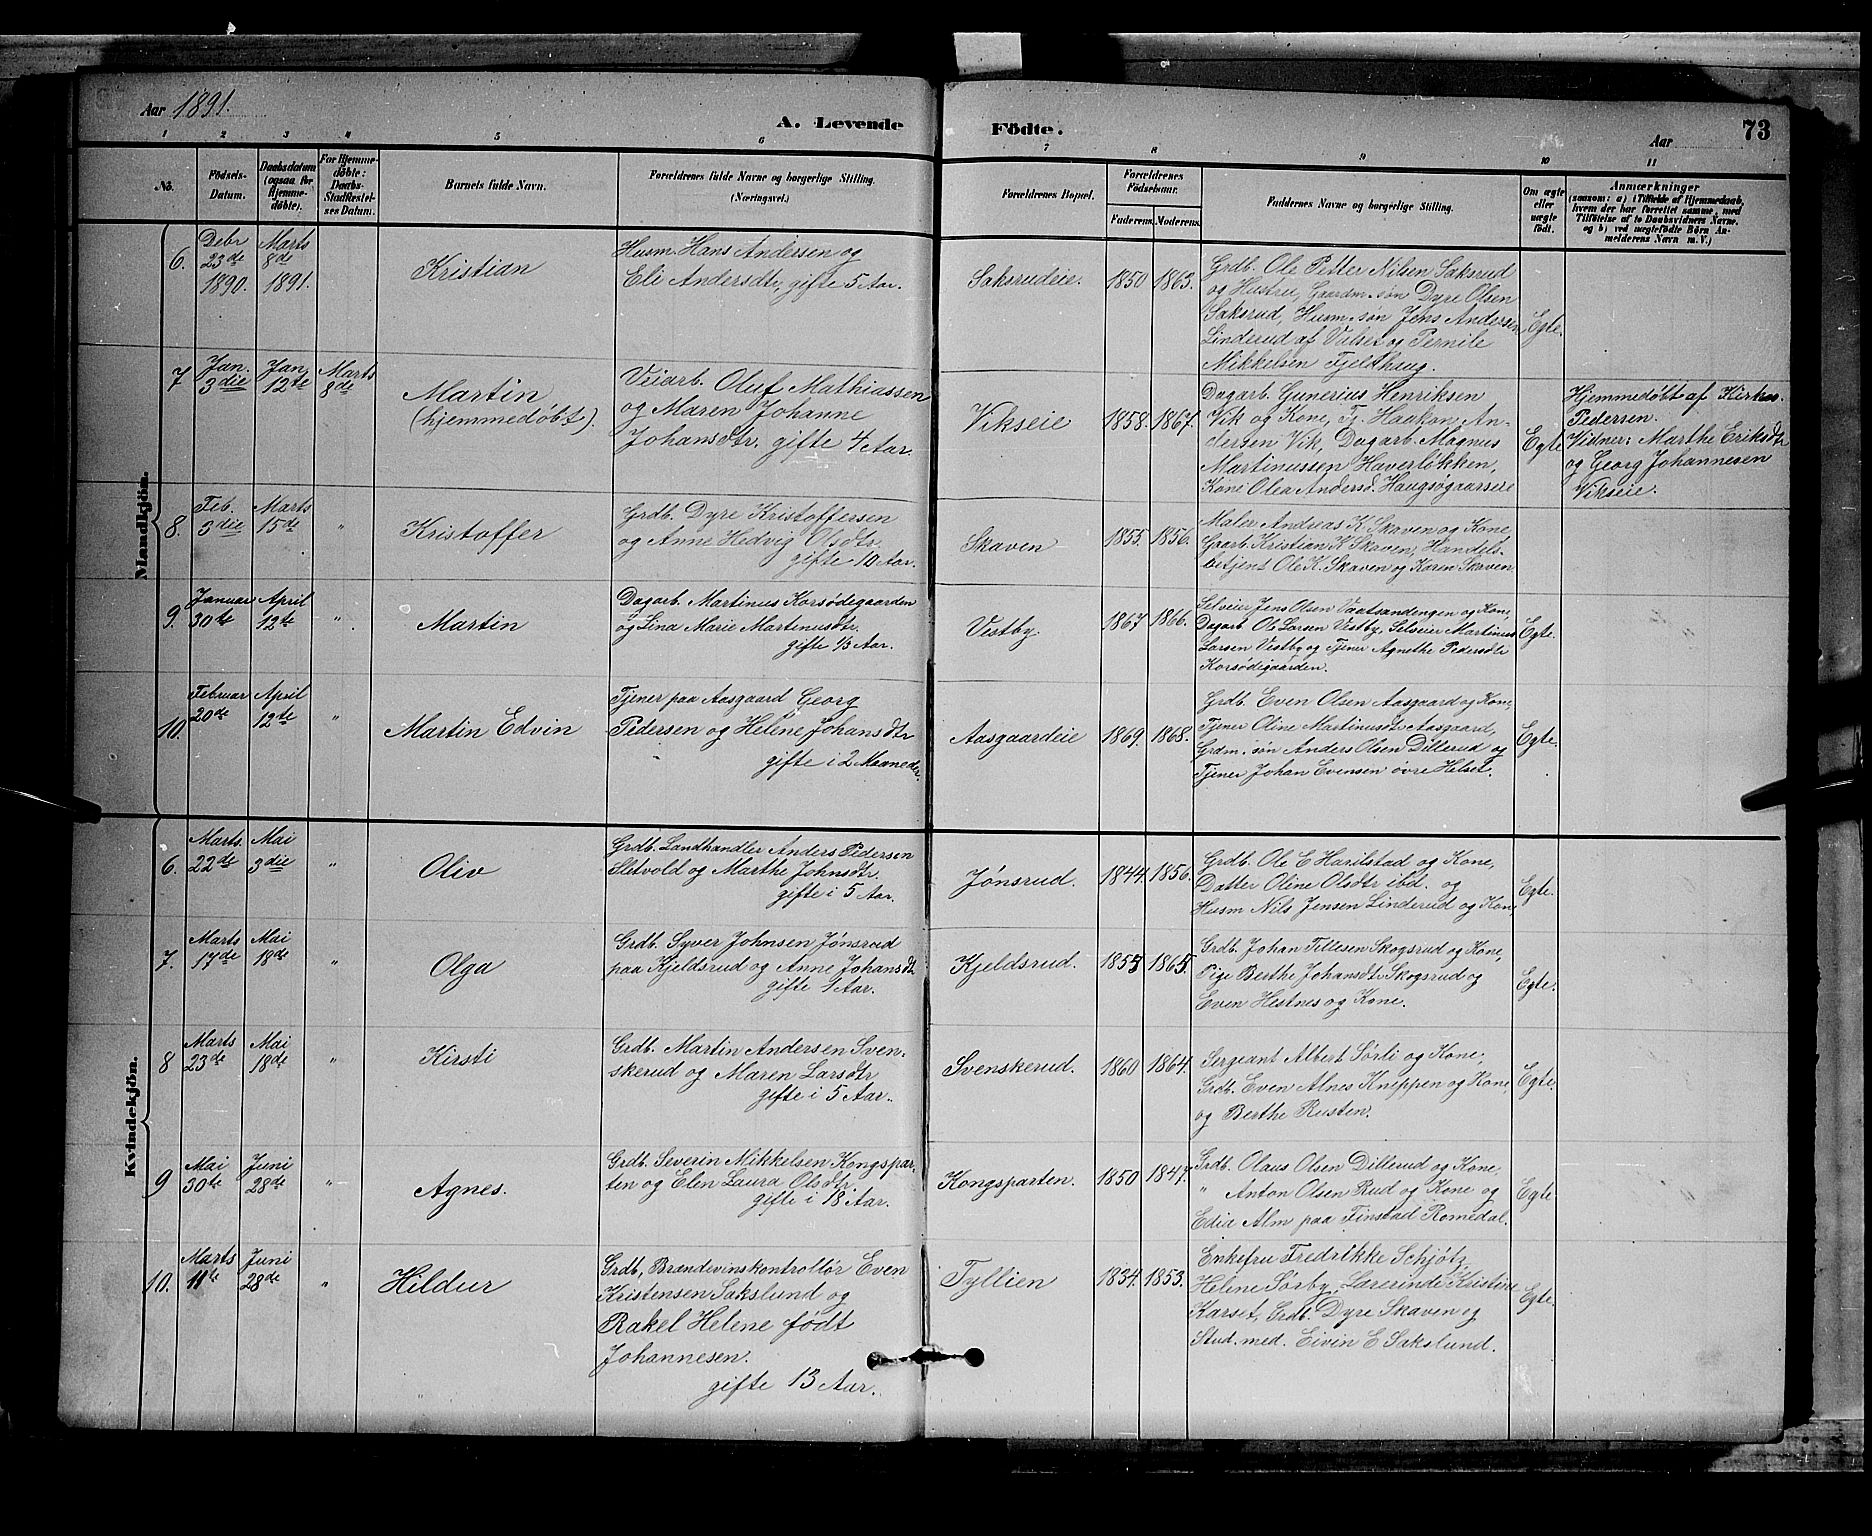 Aar 1891.
A. Levende Födte.
Aar
73
1 2 3 4 5 6 7 8 9 10 11
No.
Födsels-Datum.
Daabsdatum (ogsaa for Hjemme-döbte).
For Hjemme-döbte: Daabs-Stadfæstel-ses Datum.
Barnets fulde Navn.
Forældrenes fulde Navne og borgerlige Stilling. (Næringsvei.)
Forældrenes Bopæl.
Forældrenes Födselsaar.
Faderens. Moderens.
Faddernes Navne og borgerlige Stilling.
Om ægte eller uægte födt.
Anmærkninger
(saasom: a) i Tilfælde af Hjemmedaab, hvem der har forrettet samme, med Tilföielse af to Daabsvidners Navne, og b) ved uægtefödte Börn Anmelderens Navn m. V.)
Mandkjön.
6.
Debr 23de 1890.
Marts 8de 1891.
Kristian
Husm. Hans Andersen og
Eli Andersdtr, gifte 5 Aar.
Saksrudeie.
1850 1863.
Grdb. Ole Petter Nilsen Saksrud
og Hustru, Gaardm. søn Dyre Olsen
Saksrud, Husm. søn Jens Andersen
Linderud af Valset og Pernile
Mikkelsen Fjeldhaug.
Egte.
7
Jan. 3die
Jan. 12te
Marts 8de
Martin
(hjemmedöbt).
Veiarb. Oluf Mathiassen
og Maren Johanne
Johansdtr, gifte 4 Aar.
Vikseie
1858. 1867.
Dagarb. Gunerius Henriksen
Vik og Kone, Tj. Haakon An-
dersen Vik, Dagarb. Magnus
Martinussen Haverløkken,
Kone Olea Andersd. Haugsøgaarseie
Egte
Hjemmedøbt af Kirkes.
Pedersen.
Vidner: Marthe Eriksdtr
og Georg Johannesen
Vikseie.
8.
Feb. 3die
Marts 15de
"
Kristoffer
Grdb. Dyre Kristoffersen
og Anne Hedvig Olsdtr.
gifte 10 Aar.
Skaven
1855. 1856.
Maler Andreas K Skaven og Kone
Gaarb. Kristian K Skaven, Handels-
betjent Ole K. Skaven og Karen Skaven
9.
Januar 30te
April 12te
"
Martin
Dagarb. Martinus Korsödegaarden
og Lina Marie Martinusdtr.
gifte 1/3 Aar.
Vestby.
1867 1866.
Selveier Jens Olsen Vaatsandengen og Kone,
Dagarb. Ole Larsen Vestby, Selveier Martinus
Larsen Vestby og Tjener Agnethe Pedersdtr
Korsödegaarden.
Egte.
10.
Februar 20de
April 12te
"
Martin Edvin
Tjener paa Aasgaard Georg
Pedersen og Helene Johansdtr
gifte i 2 Maaneder.
Aasgaardeie
1869. 1868.
Grdb. Even Olsen Aasgaard og Kone,
Tjener Oline Martinusdtr Aasgaard,
Grdm. søn Anders Olsen Dillerud og
Tjener Johan Evensen øvre Helset.
Egte.
Kvindekjön.
6.
Marts. 22de
Mai 3die
"
Oliv
Grdb. Landhandler Anders Pedersen
Sletvold og Marthe Johnsdtr.
gifte i 5 Aar.
Jønsrud.
1844. 1856.
Grdb. Ole E Harilstad og Kone,
Datter Oline Olsdtr ibd. og
Husm Nils Jensen Linderud og Kone,
Egte.
7.
Marts 17de
Mai 18de
"
Olga
Grdb. Syver Johnsen Jønsrud
paa Kjeldsrud og Anne Johansdtr
gifte 1 Aar.
Kjeldsrud.
1853 1865.
Grdb. Johan Tillesen Skogsrud og Kone,
Pige Berthe Johansdtr Skogsrud og
Even Hestnes og Kone.
Egte.
8
Marts 23de
Mai 18de
"
Kirsti
Grdb. Martin Andersen Sven-
skerud og Maren Larsdtr
gifte i 5 Aar.
Svenskerud.
1860 1864.
Sergeant Albert Sørli og Kone,
Grdb. Even Alnes Kneppen og Kone,
og Berthe Rusten.
Egte.
9
Mai 30te
Juni 28de
"
Agnes.
Grdb. Severin Mikkelsen Kongspar-
ten og Elen Laura Olsdtr.
gifte i 18 Aar.
Kongsparten.
1850 1847.
Grdb. Olaus Olsen Dillerud og Kone,
" Anton Olsen Rud og Kone og
Edia Alm paa Finstad Romedal.
Egte.
10.
Marts 11te
Juni 28de
"
Hildur
Grdb, Brændevinskontrollör Even
Kristensen Sakslund og
Rakel Helene født
Johannesen.
gifte 13 Aar.
Tyllien
1834. 1853.
Enkefru Fredrikke Schjøtz,
Helene Sørby, Lærerinde Kristine
Karset, Grdb. Dyre Skaven og
Stud. med. Eivin E Sakslund.
Egte.